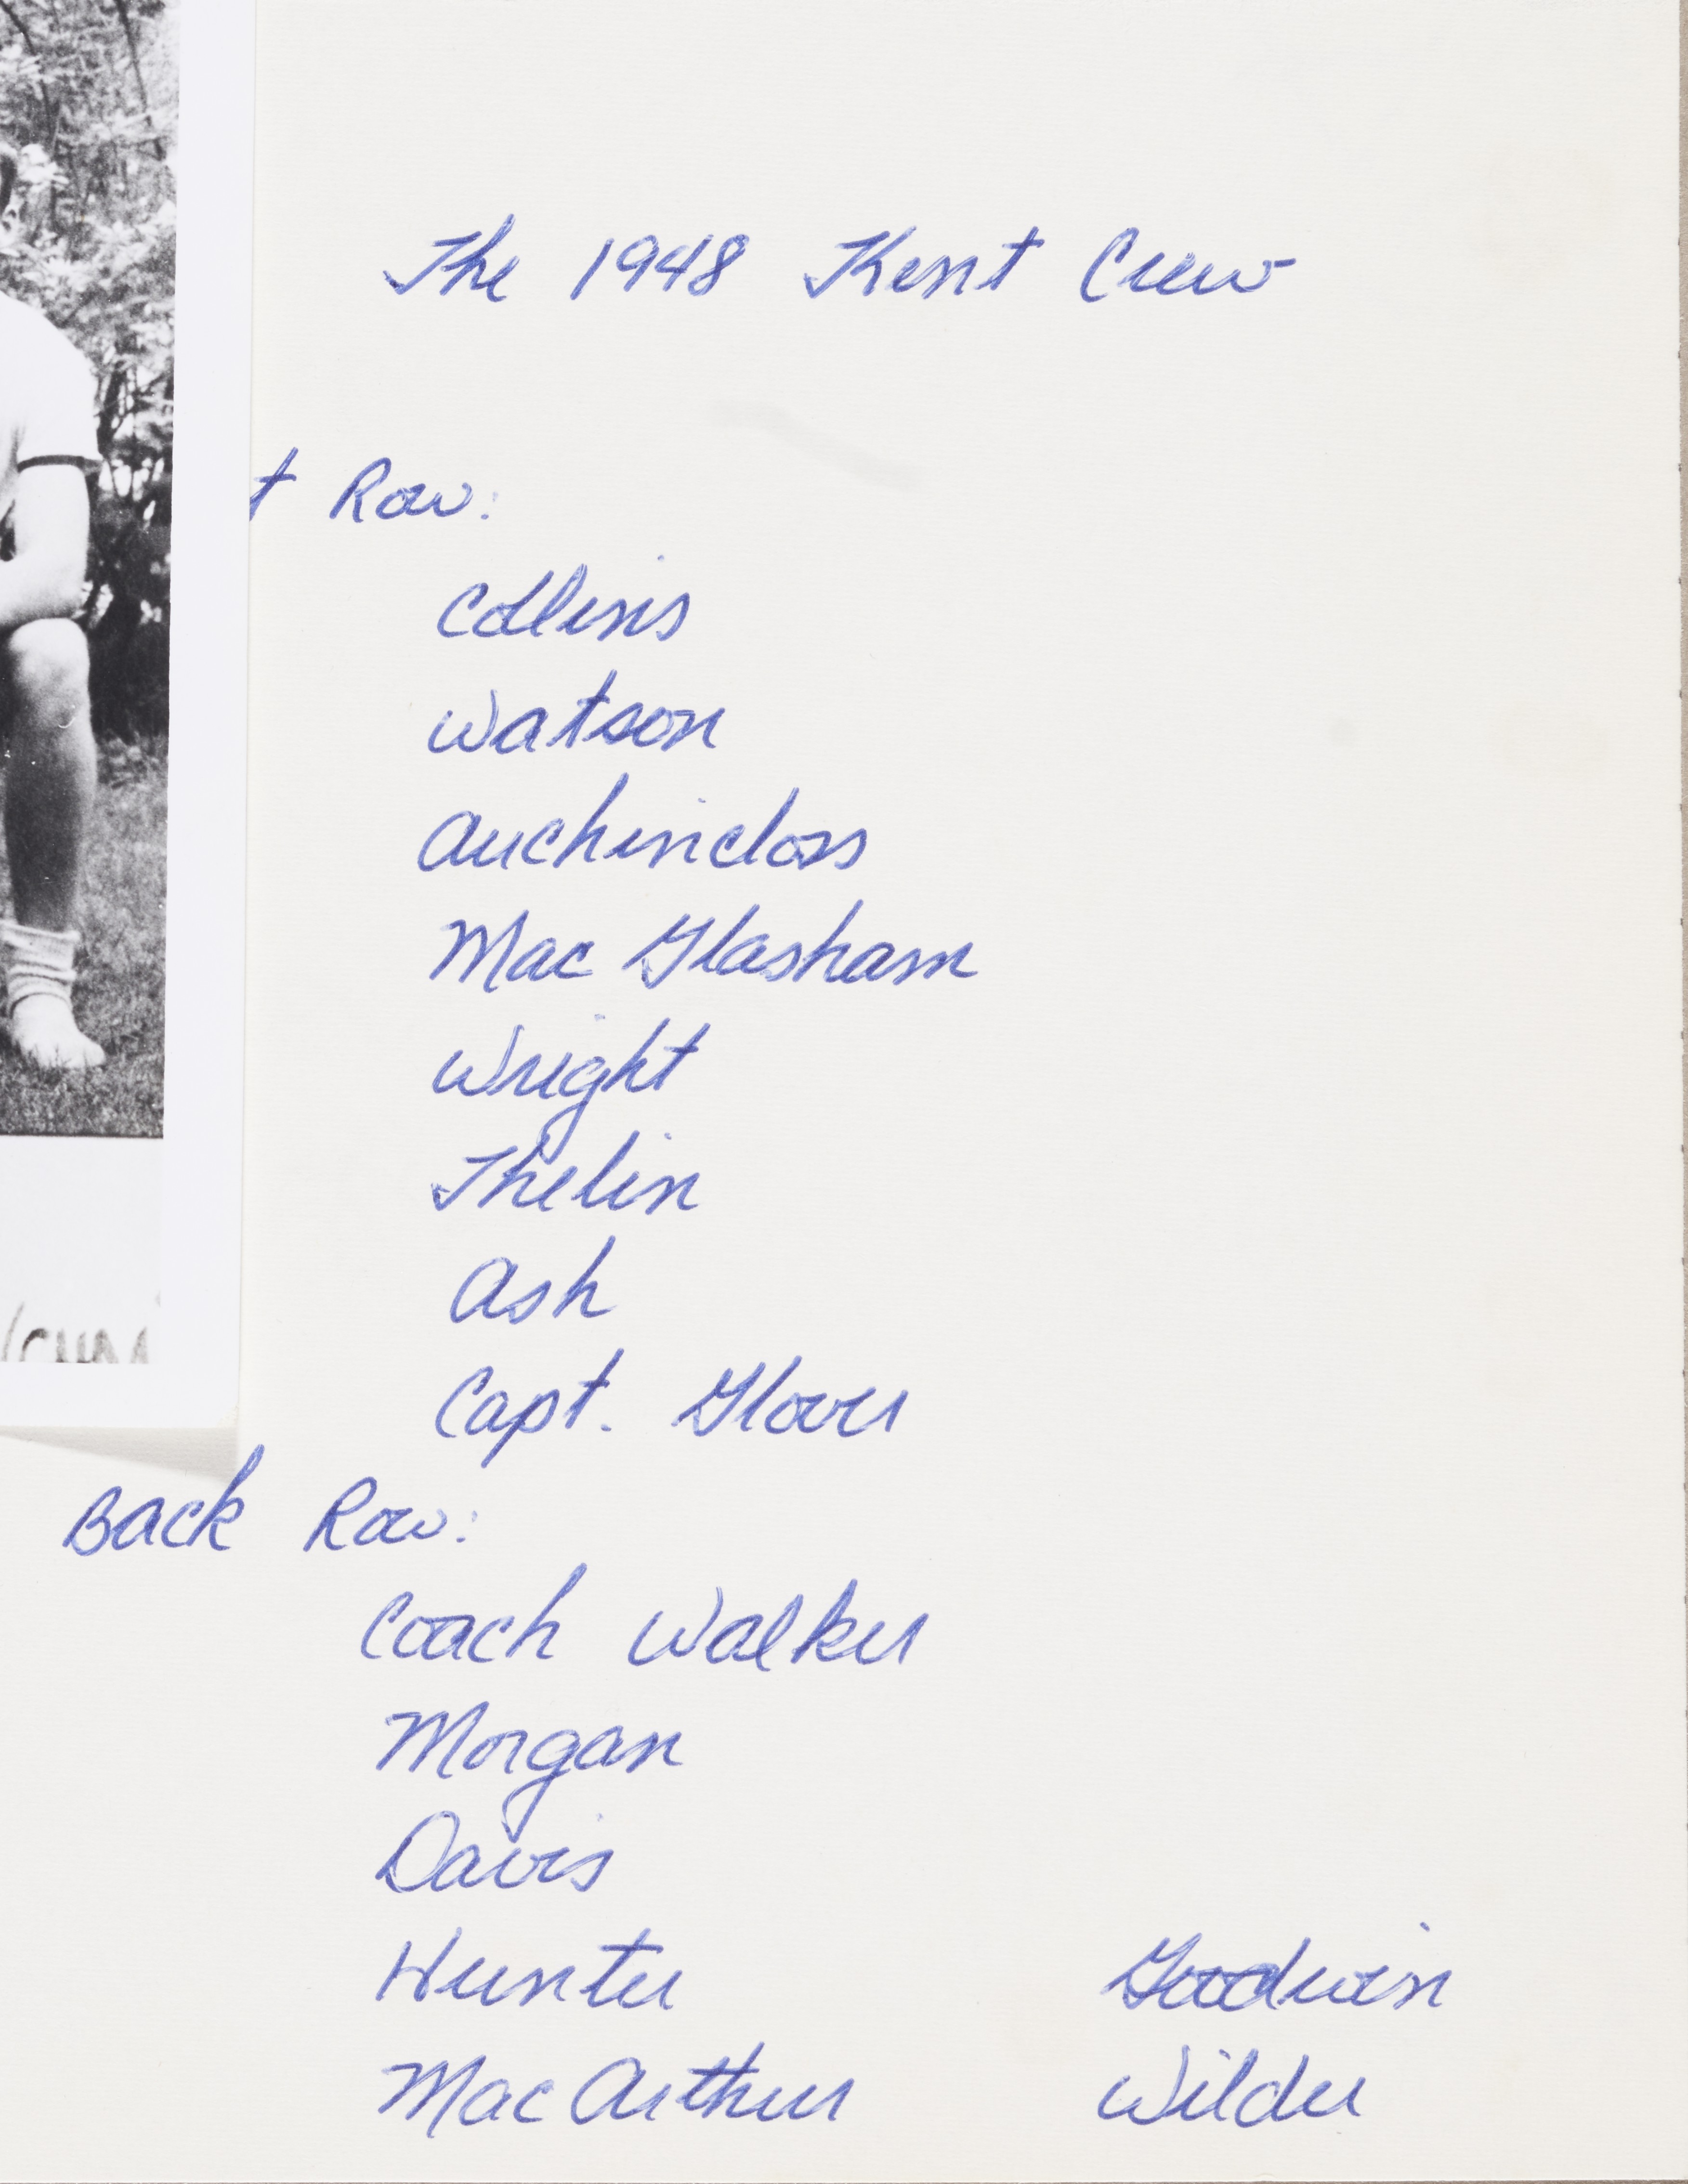 The 1948 Kent Crew
t Row:
Collins
Watson
Auchincloss
Mac Glasham
Wright
Thelin
Ash
Capt. Glover
Back Row:
Coach Walker
Morgan
Davis
Hunter Goodwin
MacArthur Wilder